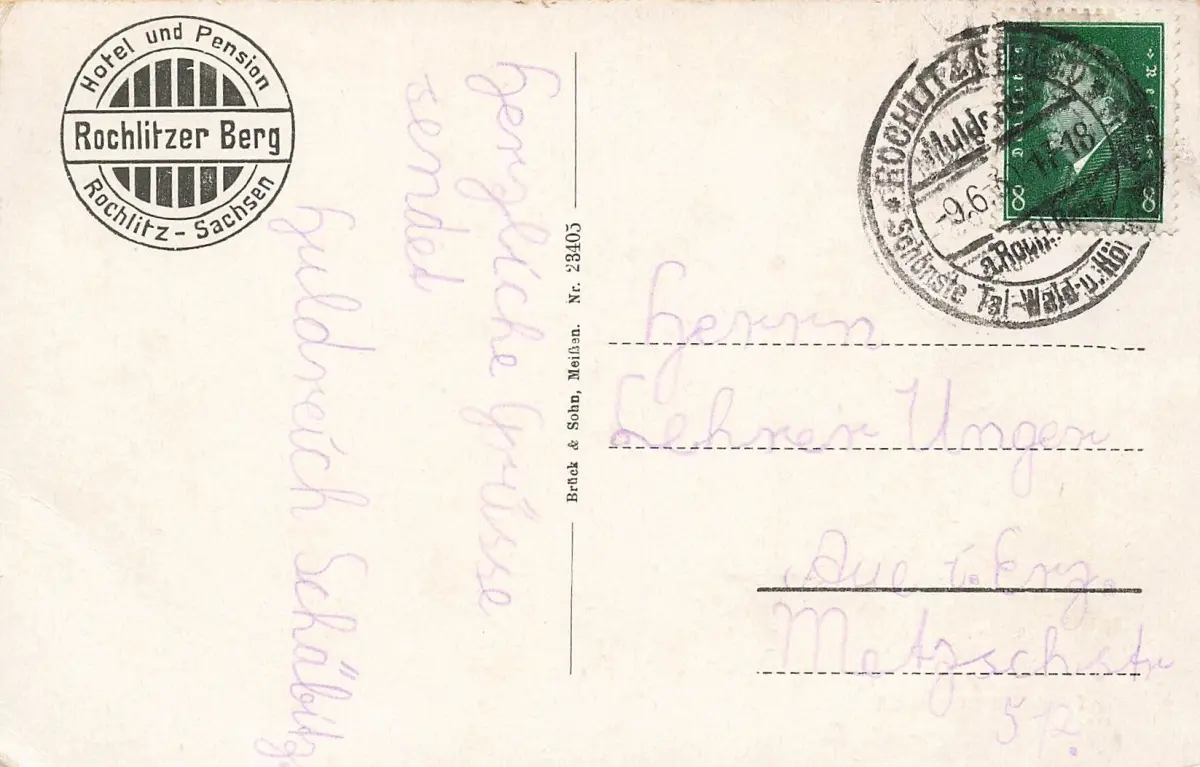 Hotel und Pension
Rochlitzer Berg
Rochlitz - Sachsen
Herzliche Grüsse
sendet
Huldreich Schäbitz
Brück & Sohn, Meißen. Nr. 23405
ROCHLITZ
-9.6. 17-18
Schönste Tal-Wald-u.
8 8
Herrn
Lehrer Unger
Aue i. Erz.
Metzschstr